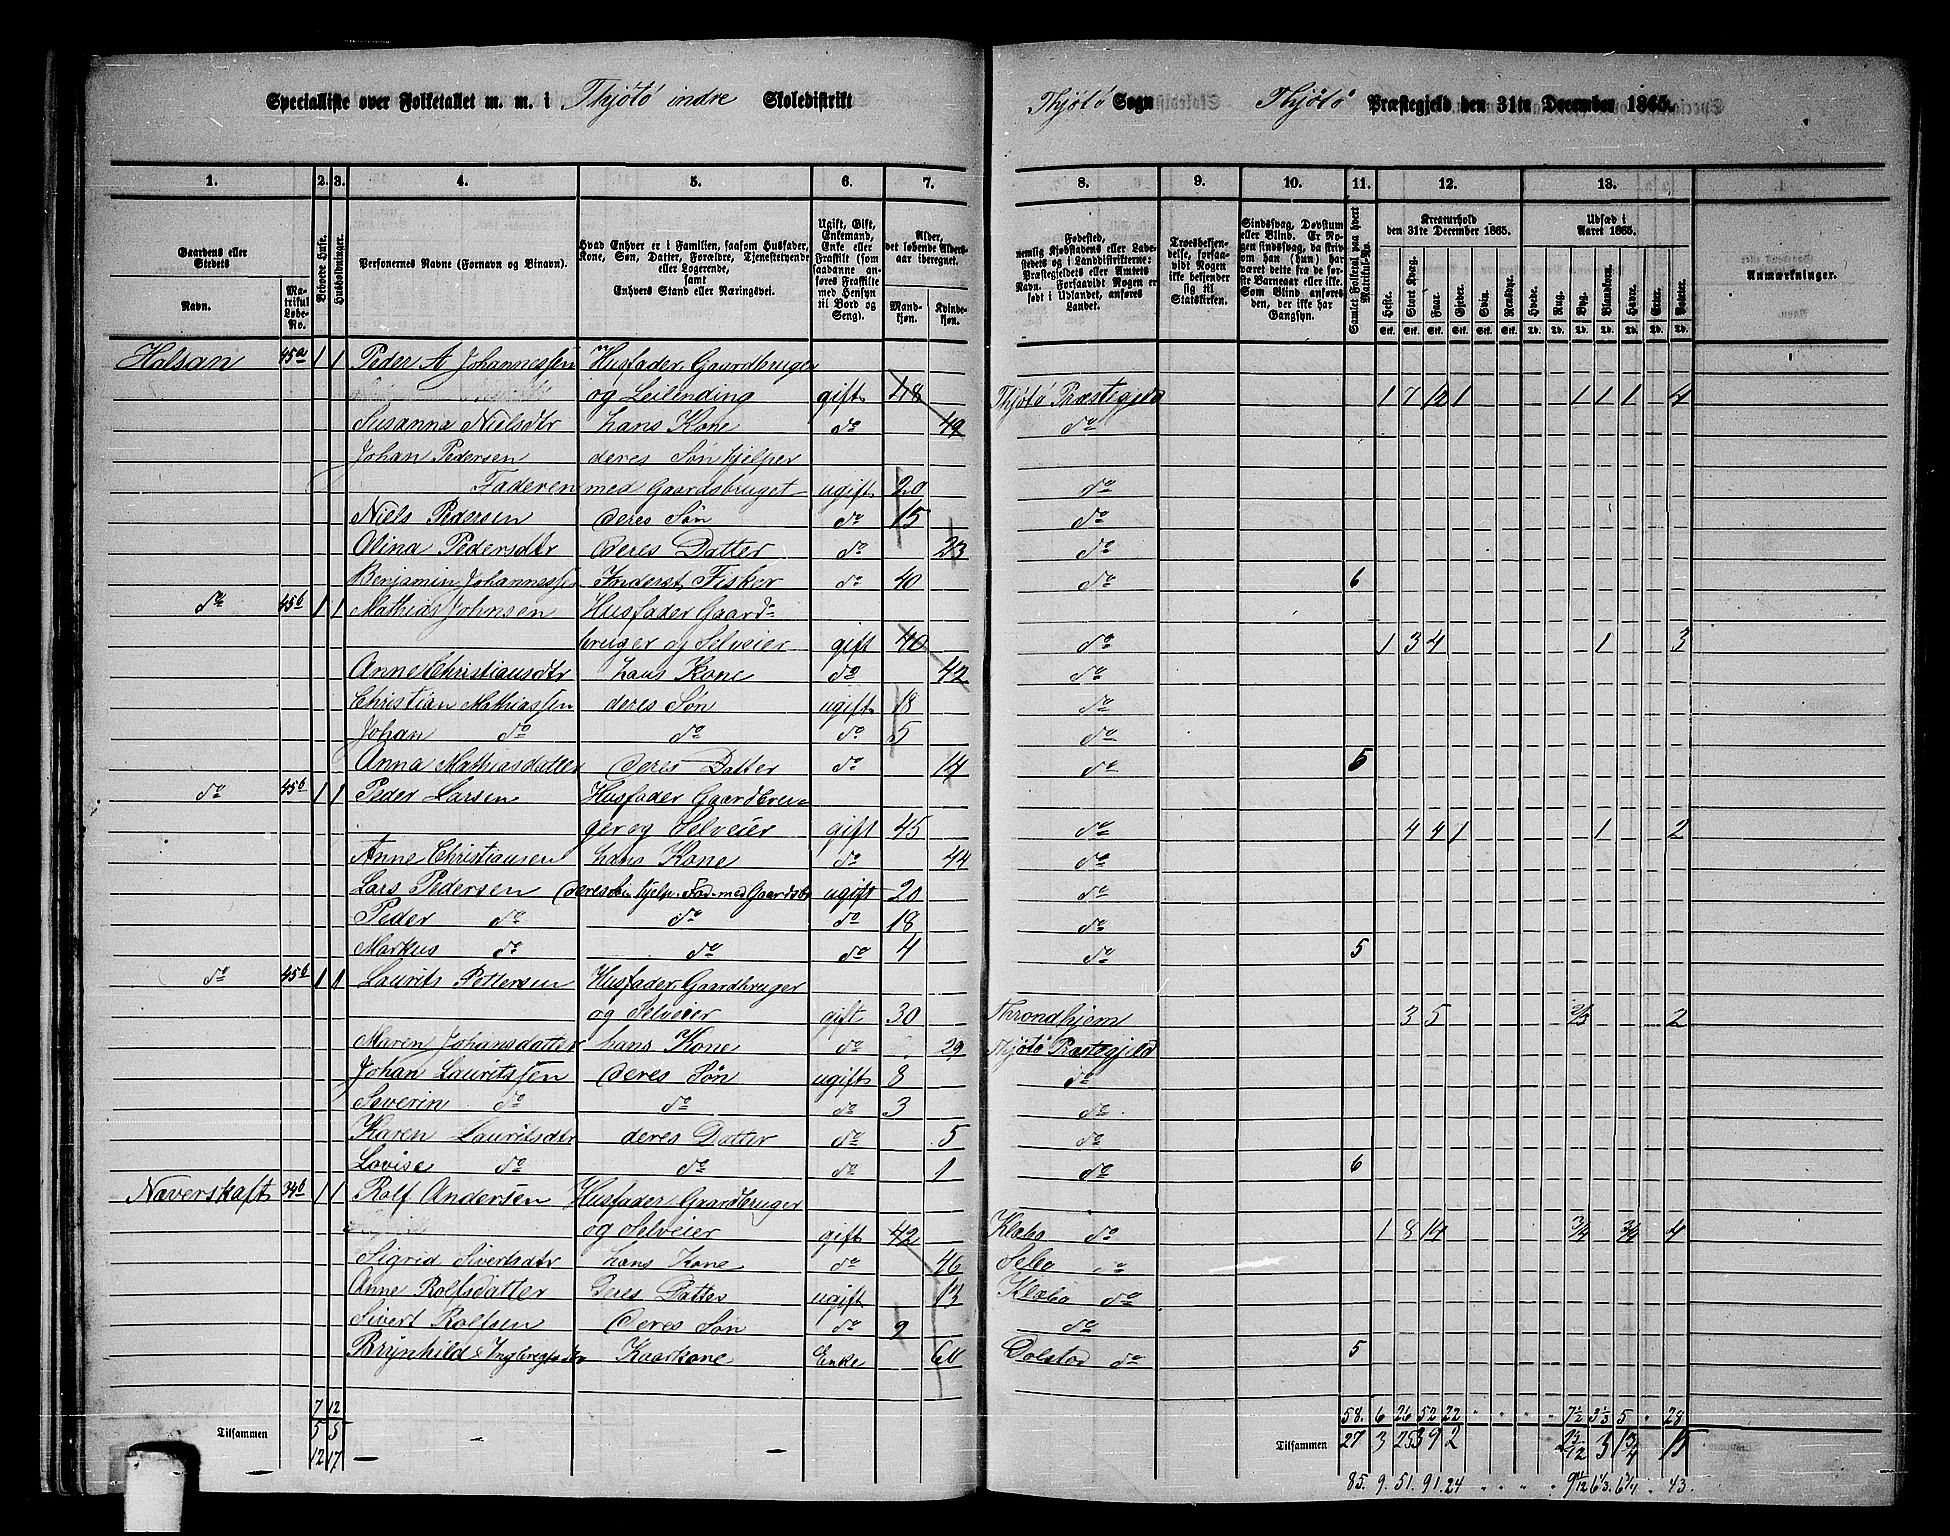 Specialliste over Folketallet m. m. i Thjötö indre Skoledistrikt Thjötö Sogn Thjötö Præstegjeld den 31te December 1865.
1. 2. 3. 4. 5. 6. 7. 8. 9. 10. 11. 12. 13.
Gaardens eller Stedets
Navn. Matrikul Løbe-No.
Beboede Huse.
Husholdninger.
Personernes Navne (Fornavn og Binavn).
Hvad Enhver er i Familien, saasom Husfader, Kone, Søn, Datter, Forældre, Tjenestetyende eller Logerende, samt Enhvers Stand eller Næringsvei.
Ugift, Gift, Enkemand, Enke eller Fraskilt (som saadanne anføres Fraskilte med Hensyn til Bord og Seng).
Alder, det løbende Aldersaar iberegnet.
Mandkjøn. Kvindekjøn.
Fødested, nemlig Kjøbstadens eller Ladestedets og i Landdistrikterne: Præstegjeldets eller Amtets Navn. Forsaavidt Nogen er født i Udlandet, anføres Landet.
Troesbekjendelse, forsaavidt Nogen ikke bekjender sig til Statskirken.
Sindssvag, Døvstum eller Blind. Er Nogen sindssvag, da skrives om han (hun) har været dette fra de første Barneaar eller ikke. Som Blind anføres den, der ikke har Gangsyn.
Samlet Folketal paa hvert Matrikul-No.
Kreaturhold den 31te December 1865.
Heste. Stort Kvæg. Faar. Gjeder. Svin. Rensdyr.
Udsæd i Aaret 1865.
Hvede. Rug. Byg. Blandkorn. Havre. Erter. Poteter.
Anmærkninger.
Halsan 45a 1 1 Peder A Johannessen Husfader, Gaardbruger
og Leilending gift 48 Thjötö Præstegjeld 1 7 12 1 1 1 1 4
Susanna Nielsdtr hans Kone do 49 do
Johan Pedersen deres Søn hjelper
Faderen med Gaardsbruget ugift 20 do
Niels Pedersen deres Søn do 15 do
Olina Pedersdtr deres Datter do 23 do
Benjamin Johannessen Inderst, Fisker do 40 do 6
do 45b 1 1 Mathias Johnsen Husfader Gaard-
bruger og Selveier gift 40 do 1 3 4 1 3
Anne Christiansdtr hans Kone do 42 do
Christian Mathiassen deres Søn ugift 18 do
Johan do do do 5 do
Anna Mathiasdatter deres Datter do 14 do 5
do 45b 1 1 Peder Larsen Husfader Gaardbru-
ger og Selveier gift 45 do 4 4 1 1 2
Anne Christiansen hans Kone do 44 do
Lars Pedersen deres Søn hjelp. Fad. med Gaardsbr ugift 20 do
Peder do do do 18 do
Markus do do do 4 do 5
do 45b 1 1 Laurits Pettersen Husfader, Gaardbruger
og Selveier gift 30 Throndhjem 3 5 2/3 2
Maren Johansdatter hans Kone do 29 Thjötö Præstegjeld
Johan Lauritssen deres Søn ugift 8 do
Severin do do do 3 do
Karen Lauritsdtr deres Datter do 5 do
Lovise do do do 1 do 6
Næverskaft 34b 1 1 Rolf Andersen Husfader Gaardbruger
og Selveier gift 42 Klæbo do 1 8 14 3/4 3/4 4
Sigrid Sivertsdtr hans Kone do 46 Selbo do
Anne Rolfsdatter Deres Datter ugift 13 Klæbo do
Sivert Rolfsen Deres Søn do 9 do
Brynhild Kaarkone Enke Dolstad do 5
7 12 58. 6 26 52 22 7½ 3⅓ 5 28
Tilsammen 5 5 Tilsammen 27 3 25 39 2 3 15
12 17 85. 9. 51. 91. 24 43.